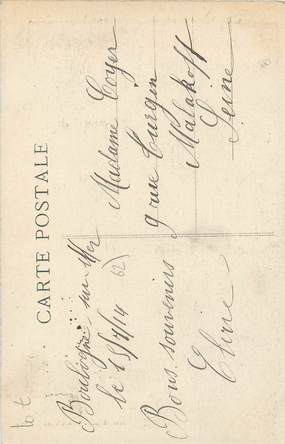 CARTE POSTALE
Boulogne sur Mer
le 15/7/14
(62)
Bons souvenirs
Madame Coyer
9 rue Turgin
Malakoff
Seine